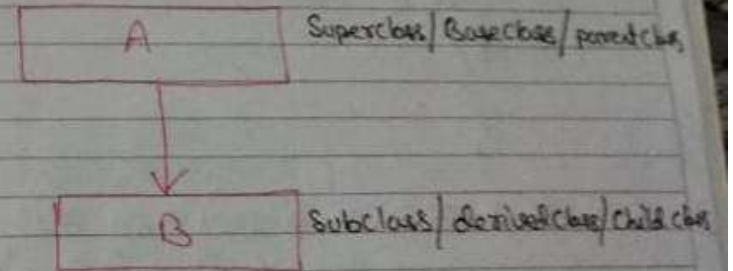 A
Superclass/Baseclass/parent class
B
Subclass/derived class/child class